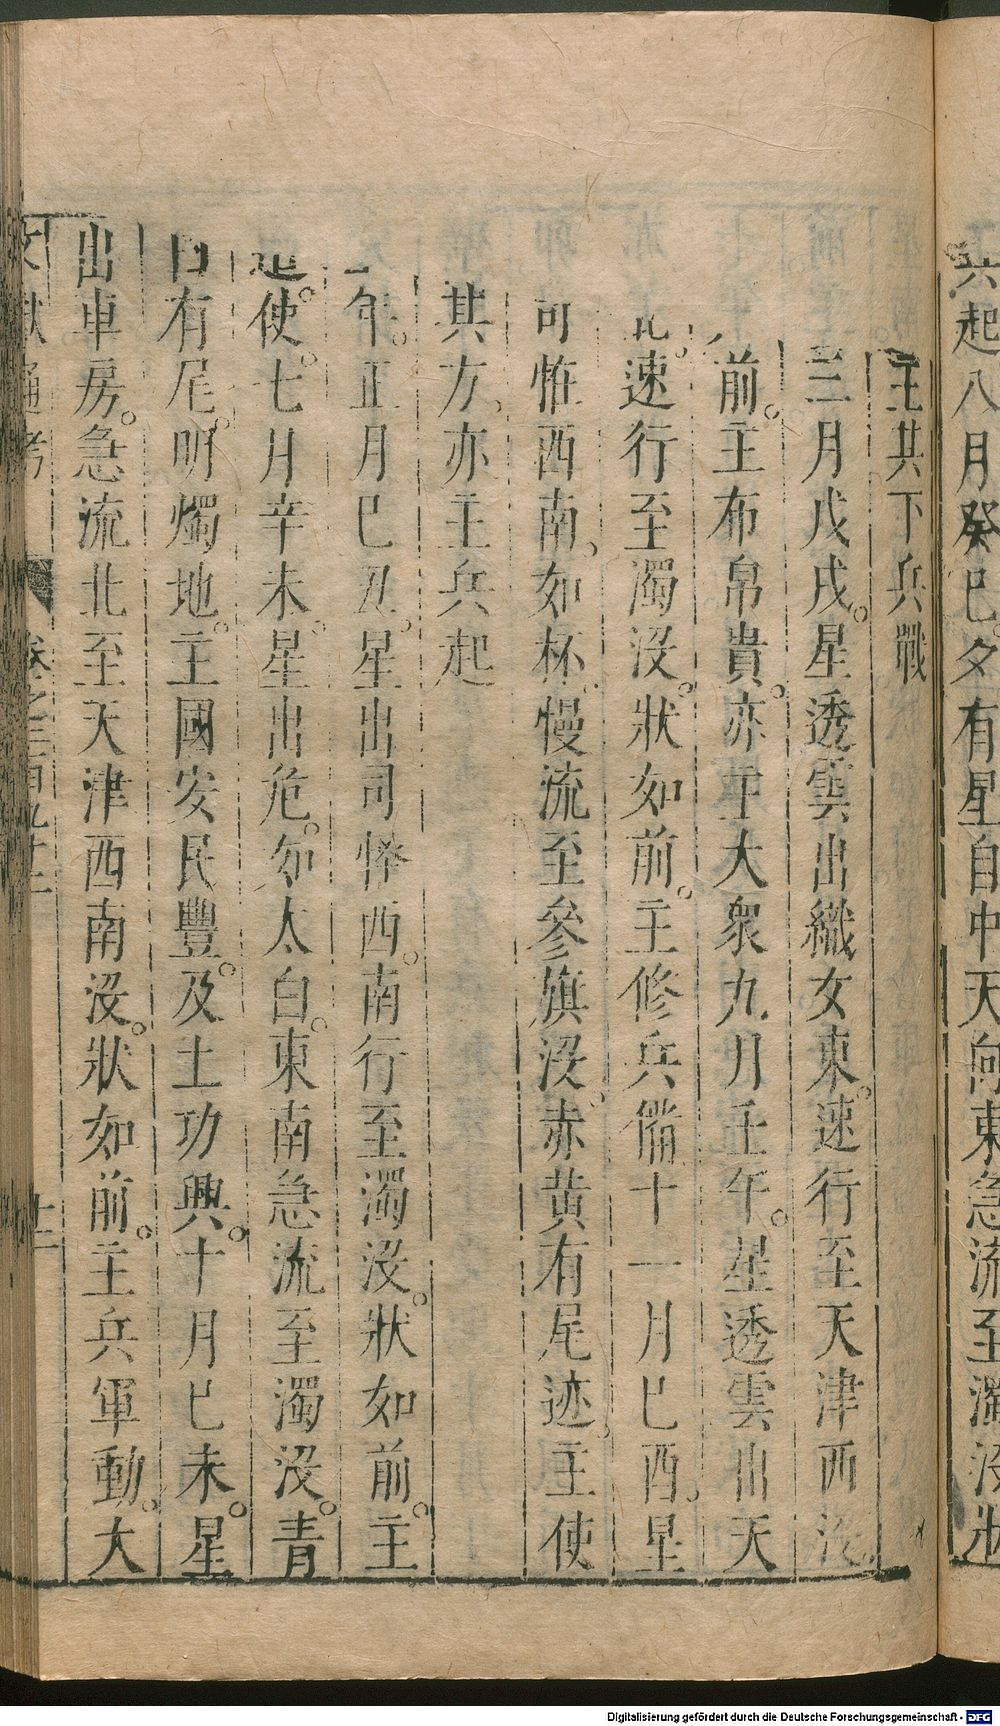 兵起八月癸巳夕有星自中天向東急流至濁没狀
主其下兵戰
三月戊戌星透雲出織女東速行至天津西没
前主布帛貴亦主大衆九月壬午星透雲出天
速行至濁没狀如前主修兵備十一月巳酉星
可恠西南如杯慢流至參旗没赤黄有尾迹主使
其方亦主兵起
年正月巳丑星出司怪西南行至濁没狀如前主
使七月辛未星出危如太白東南急流至濁没青
白有尾明燭地主國安民豐及土功興十月巳未星
出車房急流北至天津西南没狀如前主兵軍動大
文獻通考 卷之二百九十二 十二
Digitalisierung gefördert durch die Deutsche Forschungsgemeinschaft - DFG